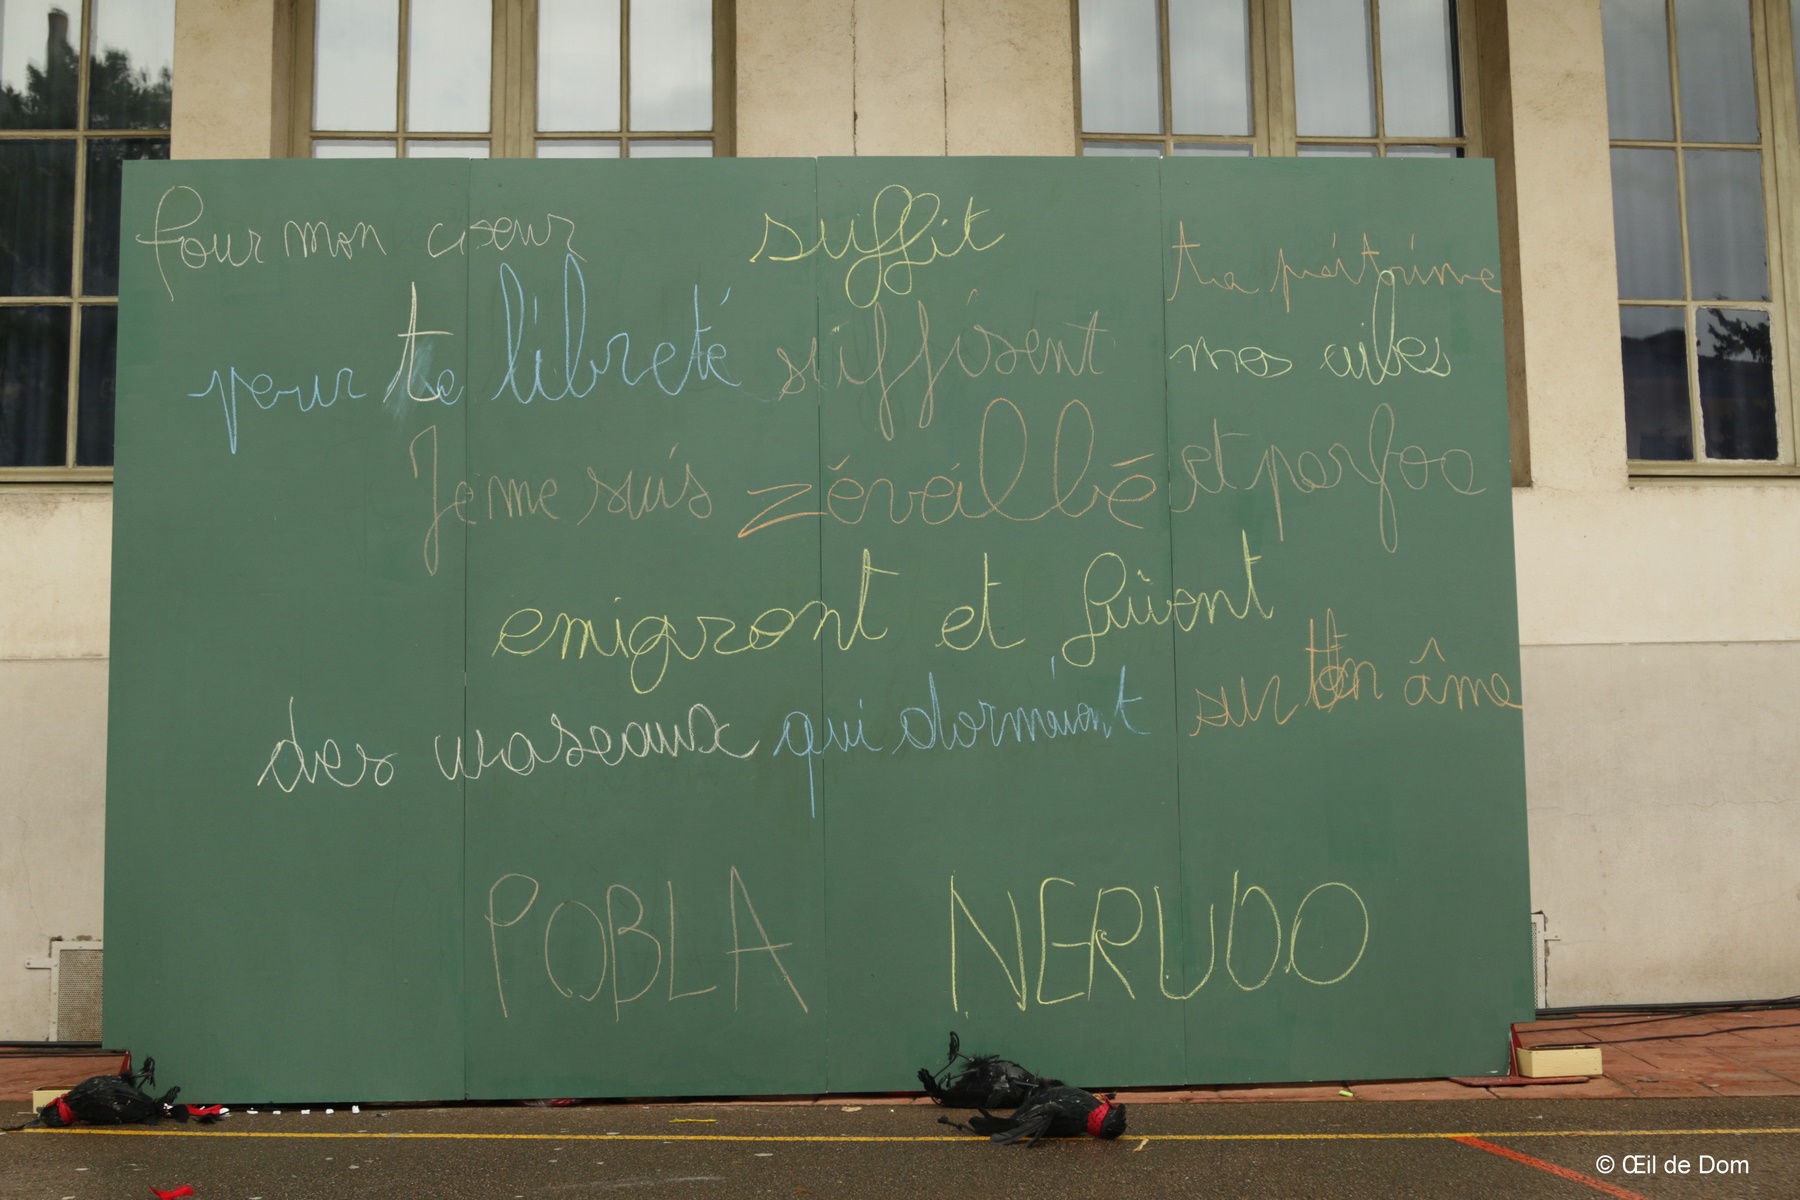 Pour mon cœur suffit ta poitrine
pour ta libreté suffisent mes ailes
Je me suis zéveillbé et parfoo
emigront et fuient
des uiaseaux qui dormaient sur ton âme
POBLA NERUDO
© Œil de Dom